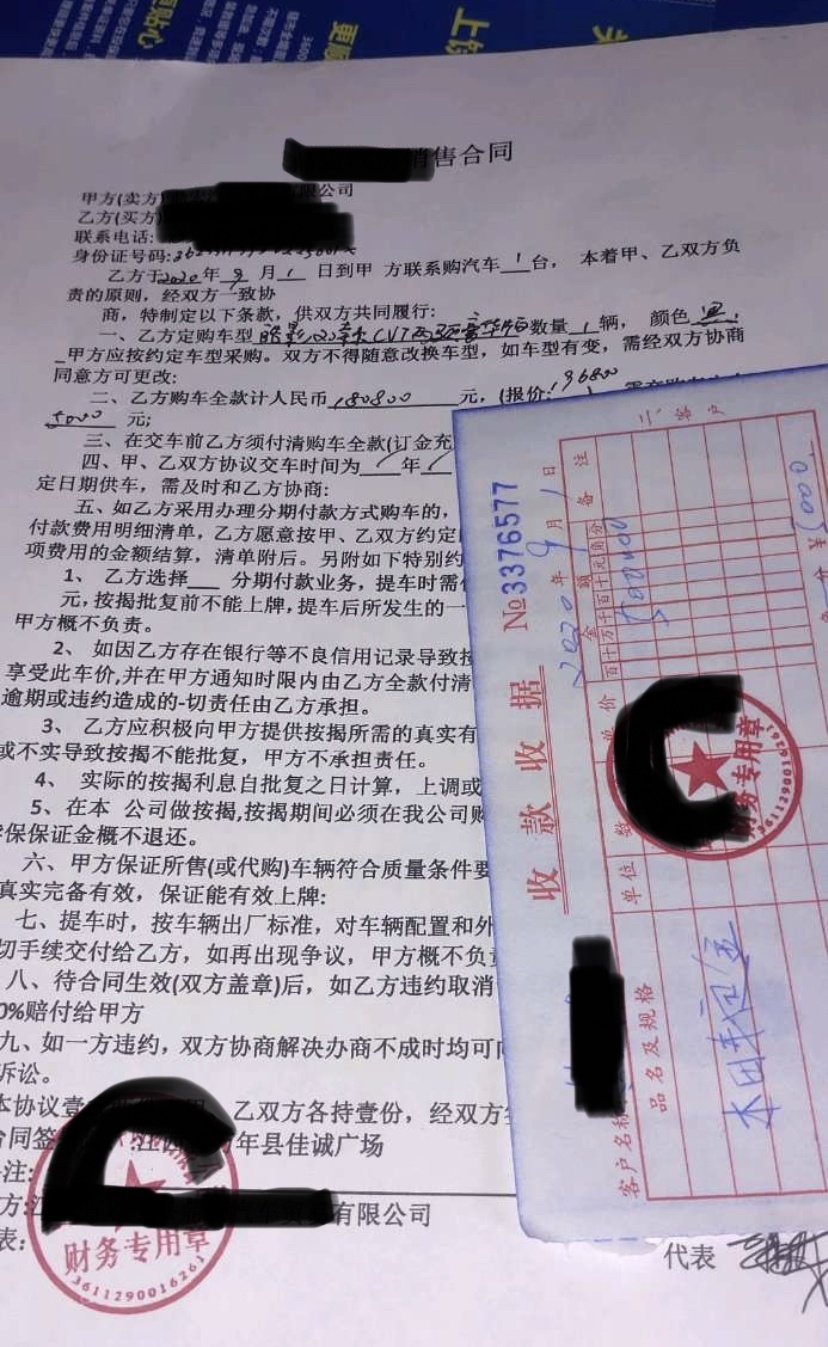 更
上
销售合同
甲方(卖方)
限公司
乙方(买方)
联系电话:
身份证号码:
乙方于2020年9月1日到甲 方联系购汽车1台, 本着甲、乙双方负
责的原则,经双方一致协
商,特制定以下条款,供双方共同履行:
一、乙方定购车型 皓影 CVT两驱豪华版数量1辆, 颜色
甲方应按约定车型采购。双方不得随意改换车型,如车型有变,需经双方协商
同意方可更改:
二、乙方购车全款计人民币180800元,(报价:196800
5000元;
三、在交车前乙方须付清购车全款(订金充
四、甲、乙双方协议交车时间为 年
定日期供车,需及时和乙方协商:
五、如乙方采用办理分期付款方式购车的,
付款费用明细清单,乙方愿意按甲、乙双方约定
项费用的金额结算,清单附后。另附如下特别约
1、 乙方选择 分期付款业务,提车时需
元,按揭批复前不能上牌,提车后所发生的一
甲方概不负责。
2、 如因乙方存在银行等不良信用记录导致按
享受此车价,并在甲方通知时限内由乙方全款付清
逾期或违约造成的-切责任由乙方承担。
3、 乙方应积极向甲方提供按揭所需的真实有
或不实导致按揭不能批复,甲方不承担责任。
4、 实际的按揭利息自批复之日计算,上调或
5、在本 公司做按揭,按揭期间必须在我公司购
保保证金概不退还。
六、甲方保证所售(或代购)车辆符合质量条件要
真实完备有效,保证能有效上牌:
七、提车时,按车辆出厂标准,对车辆配置和外
切手续交付给乙方,如再出现争议,甲方概不负责
八、待合同生效(双方盖章)后,如乙方违约取消
0%赔付给甲方
九、如一方违约,双方协商解决办商不成时均可向
诉讼。
本协议壹 乙双方各持壹份,经双方签
合同签 万年县佳诚广场
注:
方:江
有限公司
表:
财务专用章
3611290016261
代表
收款收据
№3376577
2020年9月1日
二 客户
客户名称
品名及规格
单位
数
单价
金额
百十万千百十元角分
备注
本田来订金
500000
¥5000
财务专用章
3611290016261